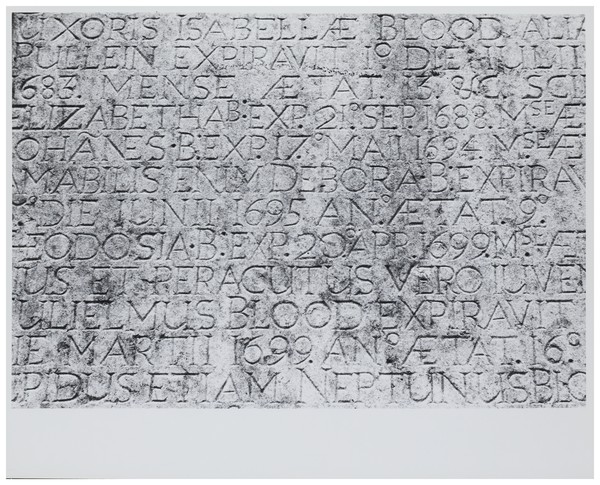 UXORIS ISABELLÆ BLOOD ALIA
PULLEIN EXPIRAVIT 1º DIE IULII
1683. MENSE ÆTAT. 13. &C. SCI
ELIZABETHA B. EXP. 21º SEP. 1688. MSE Æ
IOHANES. B. EXP. 17.º MAII 1694. MSE Æ
MABILIS ENIM DEBORA B. EXPIRAV
º DIE IUNII 1695 AN.º ÆTAT. 9º
EODOSIA. B. EXP. 20º APR. 1699. MS. ÆT
US ET PERACUTUS VERO IUVEN
GULIELMUS BLOOD EXPIRAVI
IE MARTII 1699. AN.º ÆTAT. 16.º
PIDUS ETIAM NEPTUNUS BLO